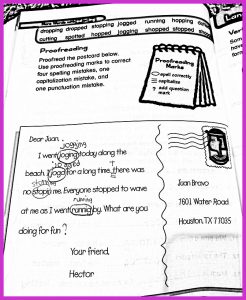 dropping dropped stopping jogged running hopping
cutting spotted hopped jogging shopped stopped
Proofreading
Proofread the postcard below.
Use proofreading marks to correct
four spelling mistakes, one
capitalization mistake, and
one punctuation mistake.
Proofreading
Marks
spell correctly
capitalize
? add question
mark
Dear Juan,
jogging
I went joging today along the
jogged
beach. I joga for a long time. there was
stopping
no stoping me. Everyone stopped to wave
running
at me as I went runnig by. What are you
doing for fun ?
Your friend,
Hector
Juan Bravo
1601 Water Road
Houston, TX 77035